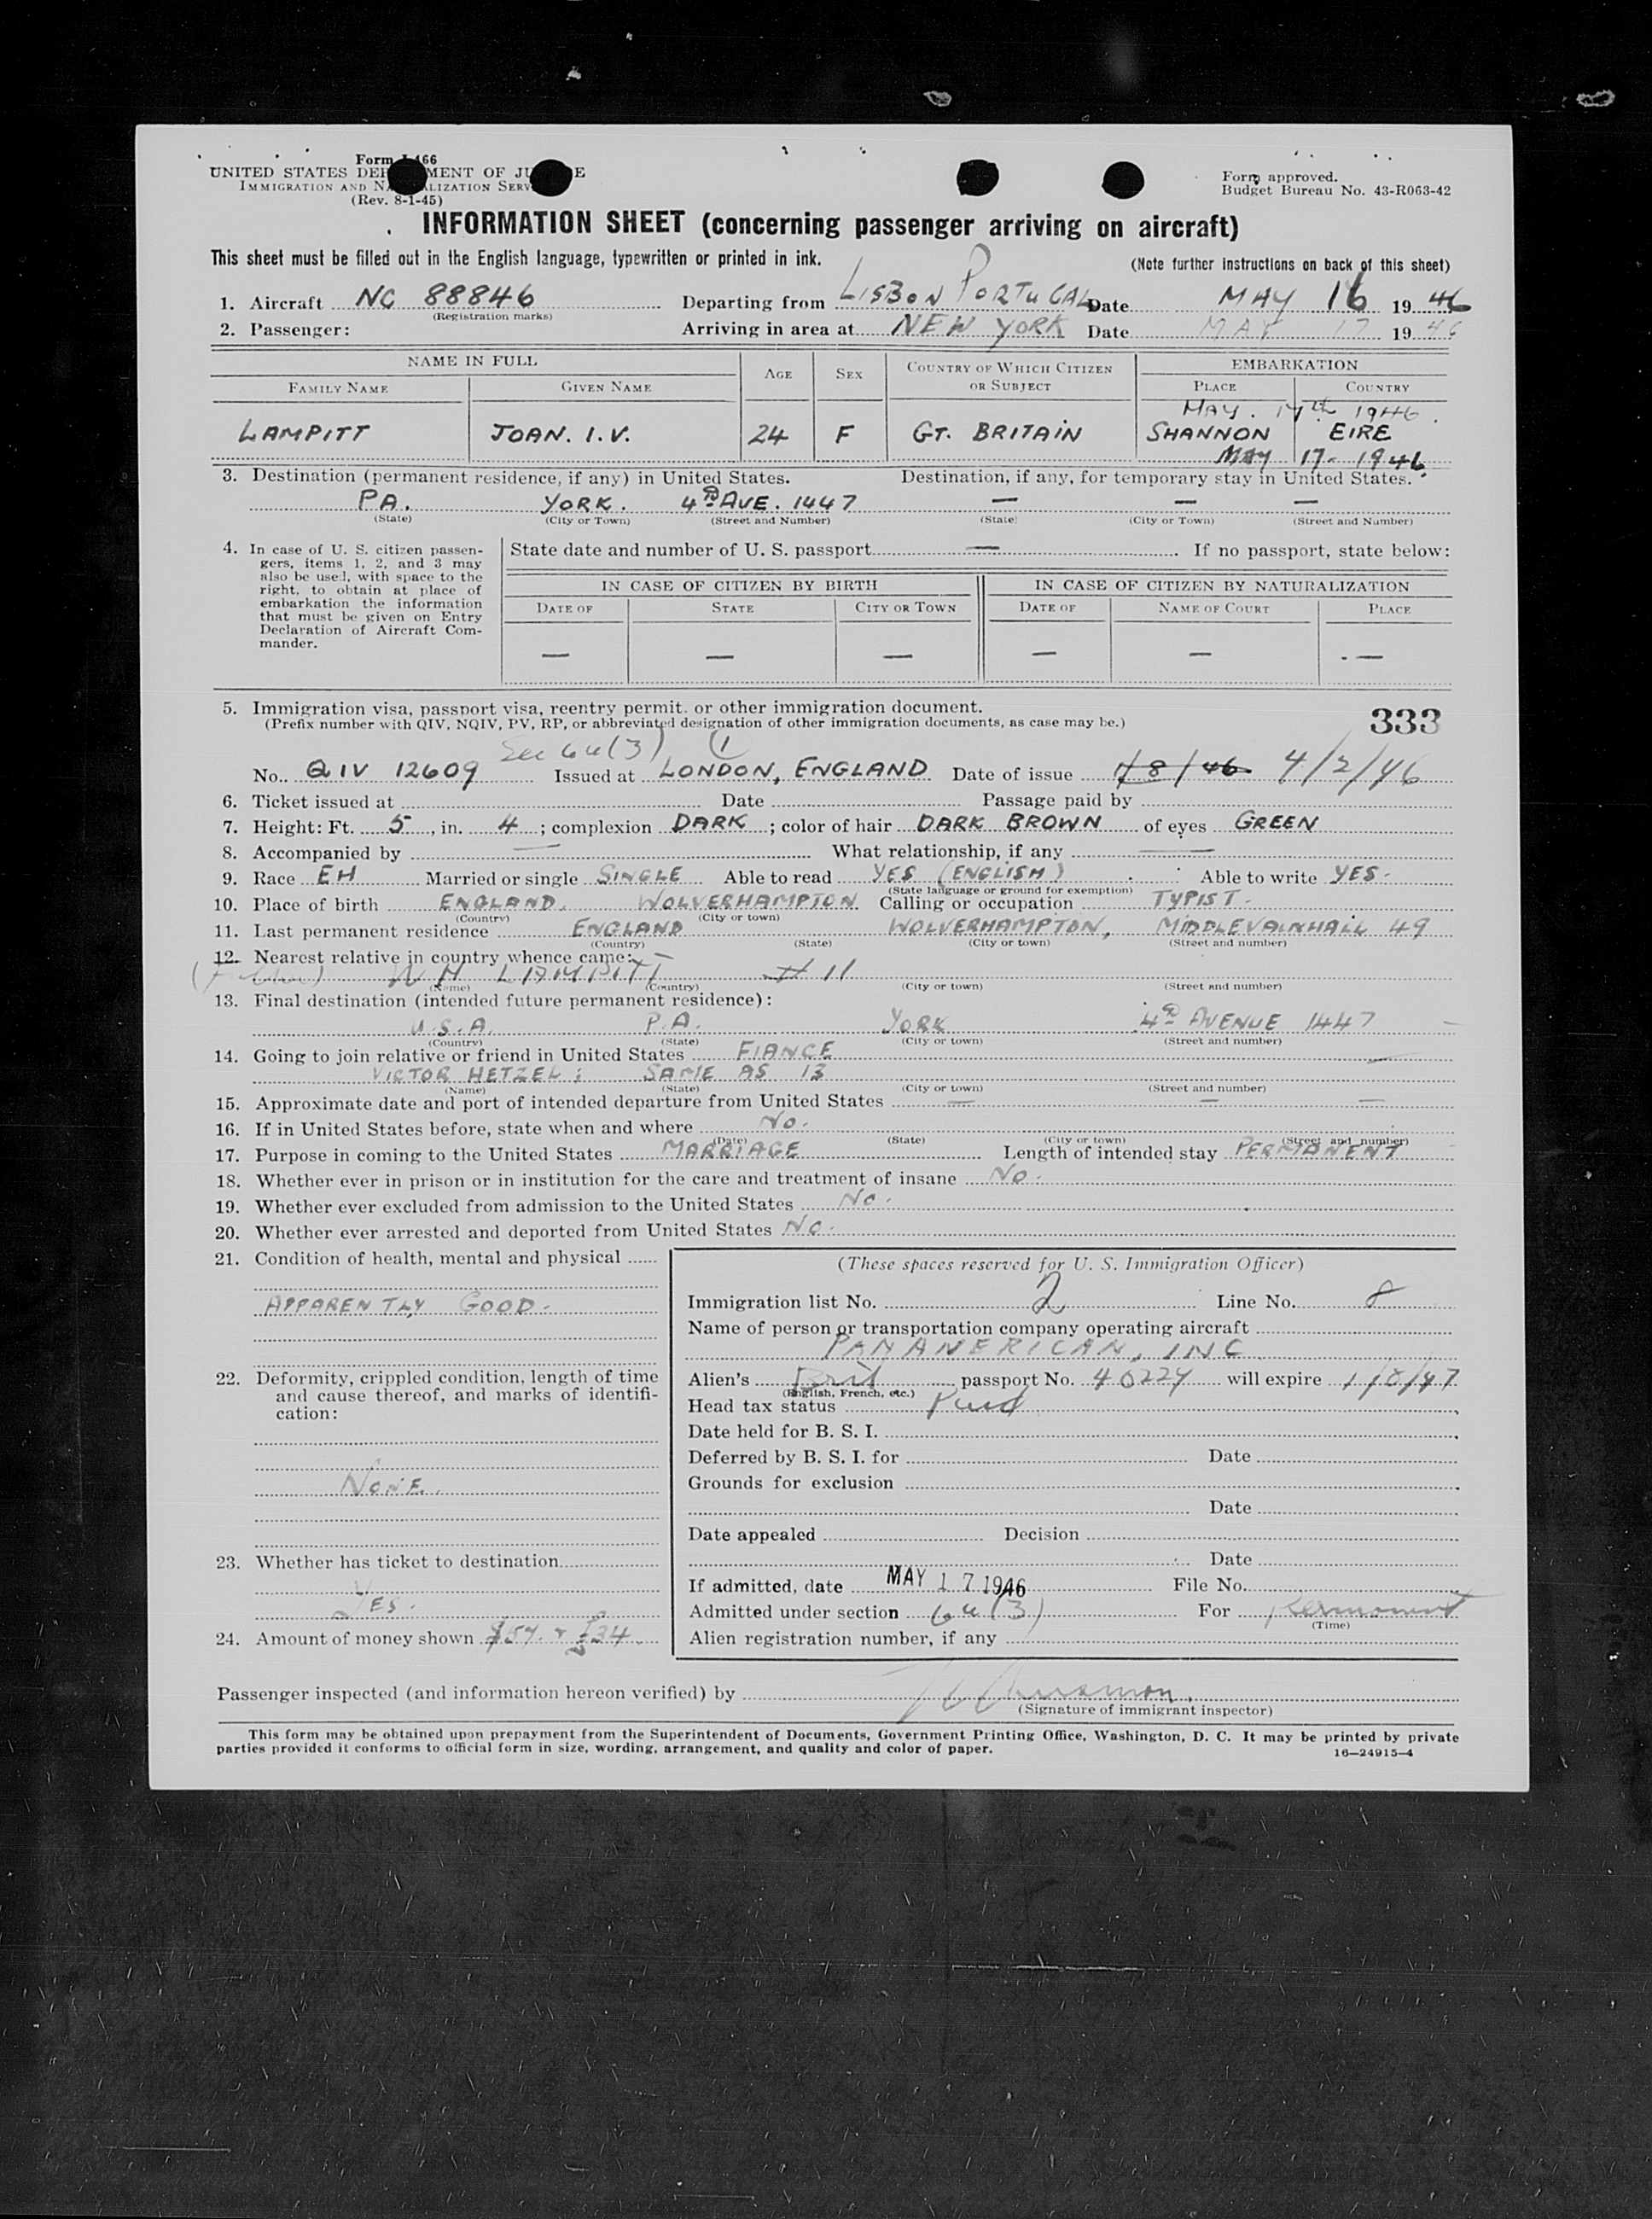 Form I-466
UNITED STATES DEPARTMENT OF JUSTICE
IMMIGRATION AND NATURALIZATION SERV
(Rev. 8-1-45)
Form approved.
Budget Bureau No. 43-R063-42
INFORMATION SHEET (concerning passenger arriving on aircraft)
This sheet must be filled out in the English language, typewritten or printed in ink. (Note further instructions on back of this sheet)
1. Aircraft NC 88846 Departing from LISBON PORTUGAL Date MAY 16 1946
(Registration marks)
2. Passenger: Arriving in area at NEW YORK Date MAY 17 1946
NAME IN FULL AGE SEX COUNTRY OF WHICH CITIZEN OR SUBJECT EMBARKATION
FAMILY NAME GIVEN NAME PLACE COUNTRY
MAY. 17th 1946.
LAMPITT JOAN. I.V. 24 F GT. BRITAIN SHANNON EIRE
MAY 17- 1946
3. Destination (permanent residence, if any) in United States. Destination, if any, for temporary stay in United States.
PA. YORK. 4th AVE. 1447 — — —
(State) (City or Town) (Street and Number) (State) (City or Town) (Street and Number)
4. In case of U. S. citizen passengers, items 1, 2, and 3 may also be used, with space to the right, to obtain at place of embarkation the information that must be given on Entry Declaration of Aircraft Commander.
State date and number of U. S. passport — . If no passport, state below:
IN CASE OF CITIZEN BY BIRTH IN CASE OF CITIZEN BY NATURALIZATION
DATE OF STATE CITY OR TOWN DATE OF NAME OF COURT PLACE
— — — — — —
5. Immigration visa, passport visa, reentry permit, or other immigration document.
(Prefix number with QIV, NQIV, PV, RP, or abbreviated designation of other immigration documents, as case may be.)
333
Sec 6a(3) (1
No. QIV 12609 Issued at LONDON, ENGLAND Date of issue 1/8/46 4/2/46
6. Ticket issued at Date Passage paid by
7. Height: Ft. 5, in. 4; complexion DARK; color of hair DARK BROWN of eyes GREEN
8. Accompanied by — What relationship, if any —
9. Race EH Married or single SINGLE Able to read YES (ENGLISH) Able to write YES.
(State language or ground for exemption)
10. Place of birth ENGLAND. WOLVERHAMPTON Calling or occupation TYPIST.
(Country) (City or town)
11. Last permanent residence ENGLAND WOLVERHAMPTON,
(Country) (State) (City or town) (Street and number)
12. Nearest relative in country whence came:
(Father) W H LAMPITT # 11
(Name) (Country) (City or town) (Street and number)
13. Final destination (intended future permanent residence):
U.S.A. P.A. YORK 4th AVENUE 1447
(Country) (State) (City or town) (Street and number)
14. Going to join relative or friend in United States FIANCE
VICTOR HETZEL; SAME AS 13
(Name) (State) (City or town) (Street and number)
15. Approximate date and port of intended departure from United States — — —
16. If in United States before, state when and where No.
(Date) (State) (City or town) (Street and number)
17. Purpose in coming to the United States MARRIAGE Length of intended stay PERMANENT
18. Whether ever in prison or in institution for the care and treatment of insane No.
19. Whether ever excluded from admission to the United States No.
20. Whether ever arrested and deported from United States No.
21. Condition of health, mental and physical
APPARENTLY GOOD.
22. Deformity, crippled condition, length of time and cause thereof, and marks of identification:
NONE.
23. Whether has ticket to destination
YES.
24. Amount of money shown $54. + £34
(These spaces reserved for U. S. Immigration Officer)
Immigration list No. 2 Line No. 8
Name of person or transportation company operating aircraft
PANAMERICAN, INC
Alien's Brit passport No. 40224 will expire 1/8/47
(English, French, etc.)
Head tax status Paid
Date held for B. S. I.
Deferred by B. S. I. for Date
Grounds for exclusion
Date
Date appealed Decision
Date
If admitted, date MAY 17 1946 File No.
Admitted under section 6a(3) For permanent
(Time)
Alien registration number, if any
Passenger inspected (and information hereon verified) by
(Signature of immigrant inspector)
This form may be obtained upon prepayment from the Superintendent of Documents, Government Printing Office, Washington, D. C. It may be printed by private
parties provided it conforms to official form in size, wording, arrangement, and quality and color of paper. 16—24915-4